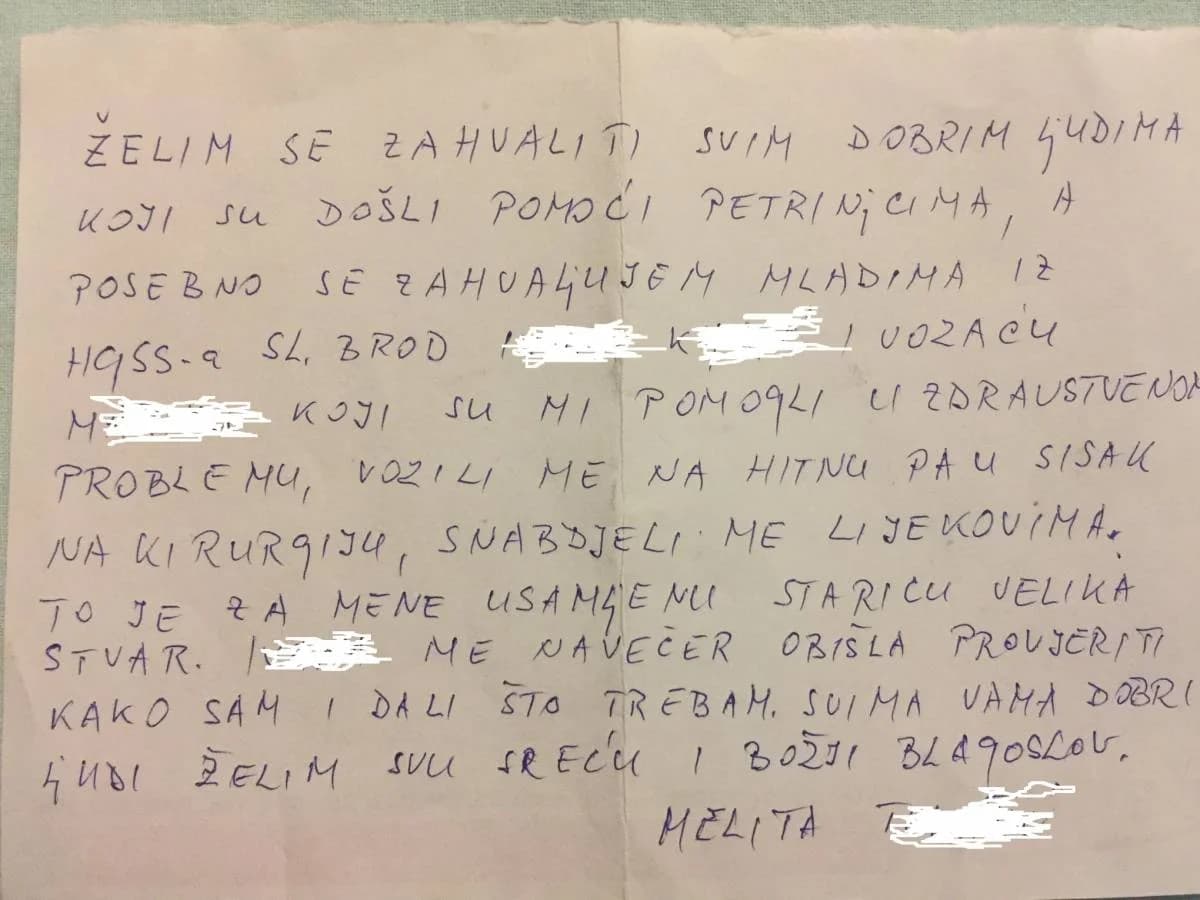 ŽELIM SE ZAHVALITI SVIM DOBRIM LJUDIMA
KOJI SU DOŠLI POMOĆI PETRINJCIMA, A
POSEBNO SE ZAHVALJUJEM MLADIMA IZ
HGSS-a SL. BROD I VOZAĆU
KOJI SU MI POMOGLI U ZDRAUSTVENOM
PROBLEMU, VOZILI ME NA HITNU PA U SISAK
NA KIRURGIJU, SNABDJELI ME LIJEKOVIMA.
TO JE ZA MENE USAMLJENU STARICU VELIKA
STVAR. ME NAVEČER OBIŠLA PROVJERITI
KAKO SAM I DALI ŠTO TREBAM. SVIMA VAMA DOBRI
LJUDI ŽELIM SVU SREĆU I BOŽJI BLAGOSLOV.
MELITA